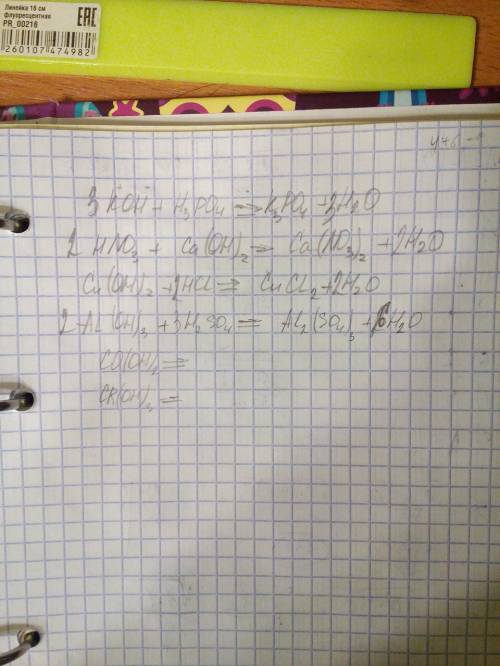 Линейка 16 см
флуоресцентная
PR_00216
EAC
260107 474982
3KOH + H₃PO₄ ⇒ K₃PO₄ + 3H₂O
2HNO₃ + Ca(OH)₂ → Ca(NO₃)₂ + 2H₂O
Cu(OH)₂ + 2HCl ⇒ CuCl₂ + 2H₂O
2AL(OH)₃ + 3H₂SO₄ = AL₂(SO₄)₃ + 6H₂O
CO(OH)₂ =
CR(OH)₃ =